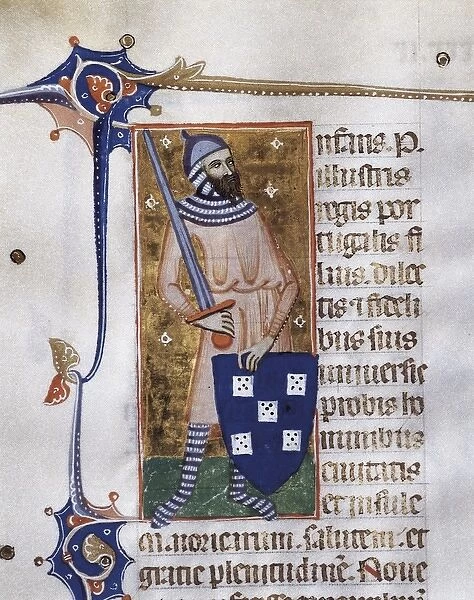 nfans. P.
illustris
regis por
tugalis fi
lius. dilec
tis ⁊ fideli
bus suis
universis
probis ho
minibus
civitatis
et insule
salutem. et
gratie plenitudinē. Noue